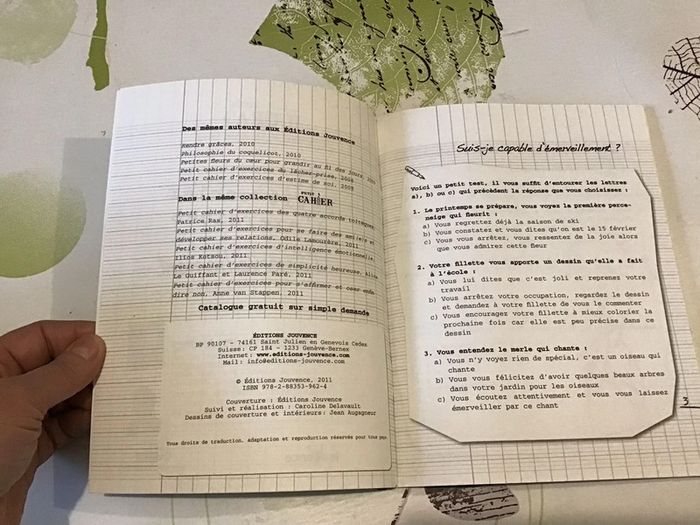 Des mêmes auteurs aux Éditions Jouvence
Rendre grâces, 2010
Philosophie du coquelicot, 2010
Petites fleurs du cœur pour grandir au fil des jours, 2009
Petit cahier d'exercices du lâcher-prise, 2008
Petit cahier d'exercices d'estime de soi, 2008
Dans la même collection PETIT CAHIER
Petit cahier d'exercices des quatre accords toltèques,
Patrice Ras, 2011
Petit cahier d'exercices pour se faire des ami(e)s et
développer ses relations, Odile Lamourère, 2011
Petit cahier d'exercices d'intelligence émotionnelle,
Ilios Kotsou, 2011
Petit cahier d'exercices de simplicité heureuse, Alice
Le Guiffant et Laurence Paré, 2011
Petit cahier d'exercices pour s'affirmer et oser enfin
dire non, Anne van Stappen, 2011
Catalogue gratuit sur simple demande
ÉDITIONS JOUVENCE
BP 90107 - 74161 Saint Julien en Genevois Cedex
Suisse: CP 184 - 1233 Genève-Bernex
Internet: www.editions-jouvence.com
Mail: info@editions-jouvence.com
© Éditions Jouvence, 2011
ISBN 978-2-88353-962-4
Couverture : Éditions Jouvence
Suivi et réalisation : Caroline Delavault
Dessins de couverture et intérieurs: Jean Augagneur
Tous droits de traduction, adaptation et reproduction réservés pour tous pays.
Suis-je capable d'émerveillement ?
Voici un petit test, il vous suffit d'entourer les lettres
a), b) ou c) qui précèdent la réponse que vous choisissez :
1. Le printemps se prépare, vous voyez la première perce-
neige qui fleurit :
a) Vous regrettez déjà la saison de ski
b) Vous constatez et vous dites qu'on est le 15 février
c) Vous vous arrêtez, vous ressentez de la joie alors
que vous admirez cette fleur
2. Votre fillette vous apporte un dessin qu'elle a fait
à l'école :
a) Vous lui dites que c'est joli et reprenez votre
travail
b) Vous arrêtez votre occupation, regardez le dessin
et demandez à votre fillette de vous le commenter
c) Vous encouragez votre fillette à mieux colorier la
prochaine fois car elle est peu précise dans ce
dessin
3. Vous entendez le merle qui chante :
a) Vous n'y voyez rien de spécial, c'est un oiseau qui
chante
b) Vous vous félicitez d'avoir quelques beaux arbres
dans votre jardin pour les oiseaux
c) Vous écoutez attentivement et vous vous laissez
émerveiller par ce chant
3